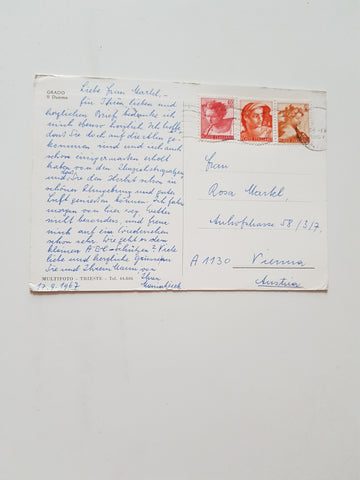 GRADO
Il Duomo
Liebe Frau Markl,
für Ihren lieben und
herzlichen Brief bedanke ich
mich ebenso herzlich. Ich hoffe,
dass Sie doch auf
kommen sind und sich auch
schon einigermassen erholt
haben von den
und den Herbst schon in
schöner Umgebung und guter
Luft geniessen können. Ich fahre
morgen von hier weg,
nicht besonders, und freue
mich auf ein Wiedersehen
schon sehr. Wie geht es dem
kleinen Viele
liebe und herzliche Grüsse an
Sie und Ihren Mann von
Ihrer
MULTIFOTO - TRIESTE - Tel.
17.9.1967
Frau
Rosa Markl,
58/3/7,
A 1130 Vienna
Austria